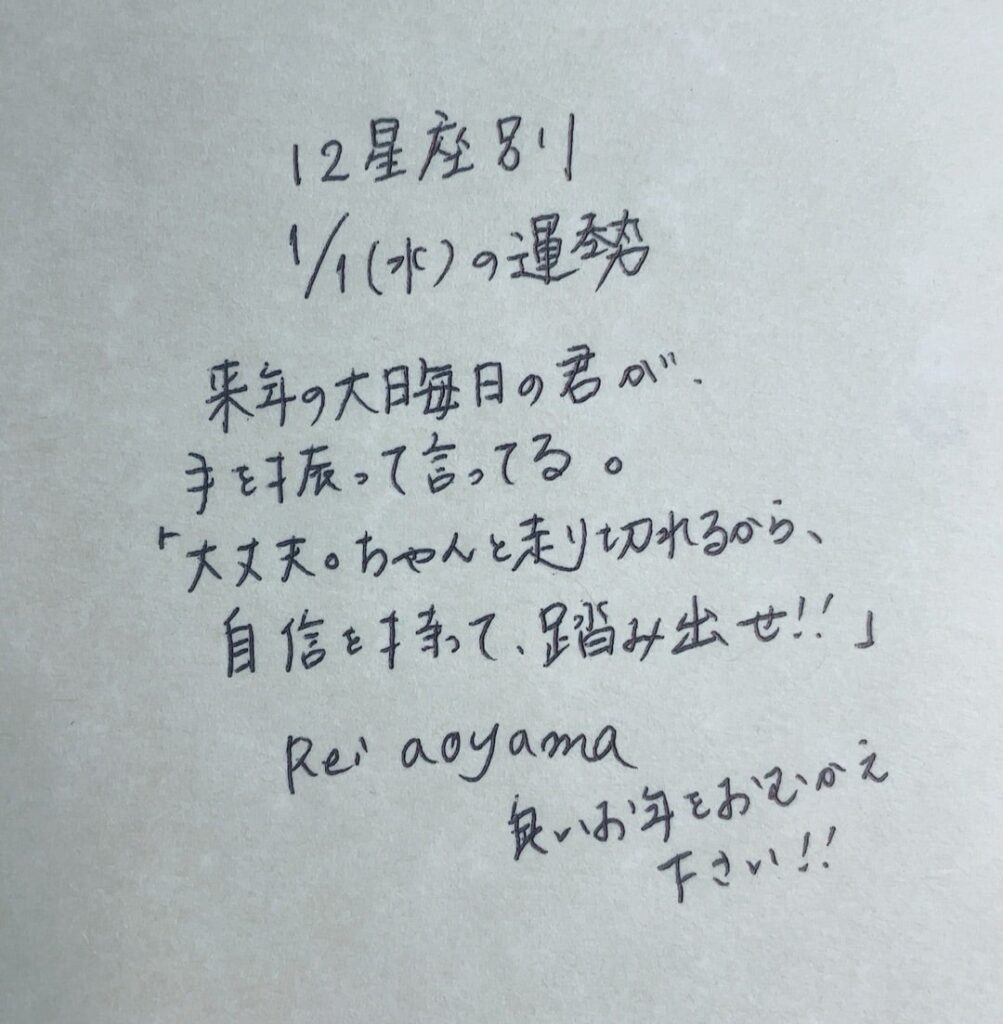 12星座別
1/1(水)の運勢
来年の大晦日の君が、
手を振って言ってる。
「大丈夫。ちゃんと走り切れるから、
自信を持って、踏み出せ!!」
Rei aoyama
良いお年をおむかえ
下さい!!